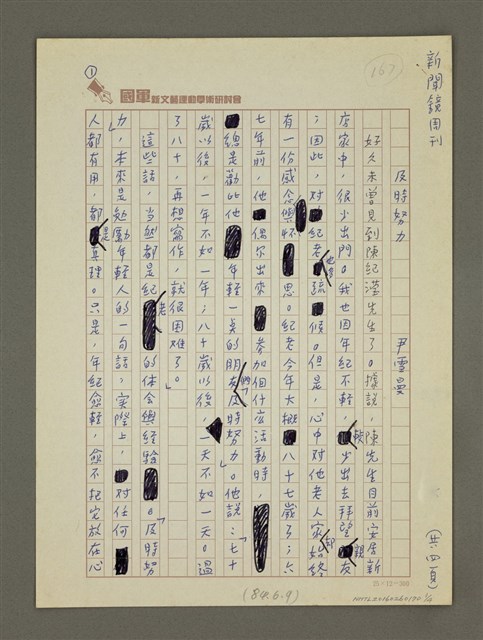 新聞鏡周刊
167
①
國軍新文藝運動學術研討會
及時努力 尹雪曼
好久未曾見到陳紀瀅先生了。據說,陳先生目前安居新
店家中,很少出門。我也因年紀不輕,較少出去拜望親友
;因此,對紀老也多疏候。但是,心中對他老人家卻始終
有一份感念與懷思。紀老今年大概八十七歲了;六
七年前,他偶尔出來參加個什麼活動時,
總是勸比他年輕一點的朋友們「及時努力」。他說:「七十
歲以後,一年不如一年;八十歲以後,一天不如一天。過
了八十,再想寫作,就很困難了。」
這些話,當然都是紀老的体会與經驗。「及時努
力」,本來是勉勵年輕人的一句話,实際上,對任何
人都有用,都是真理。只是,年紀愈輕,愈不把它放在心
(共四頁)
25×12=300
(84.6.9)